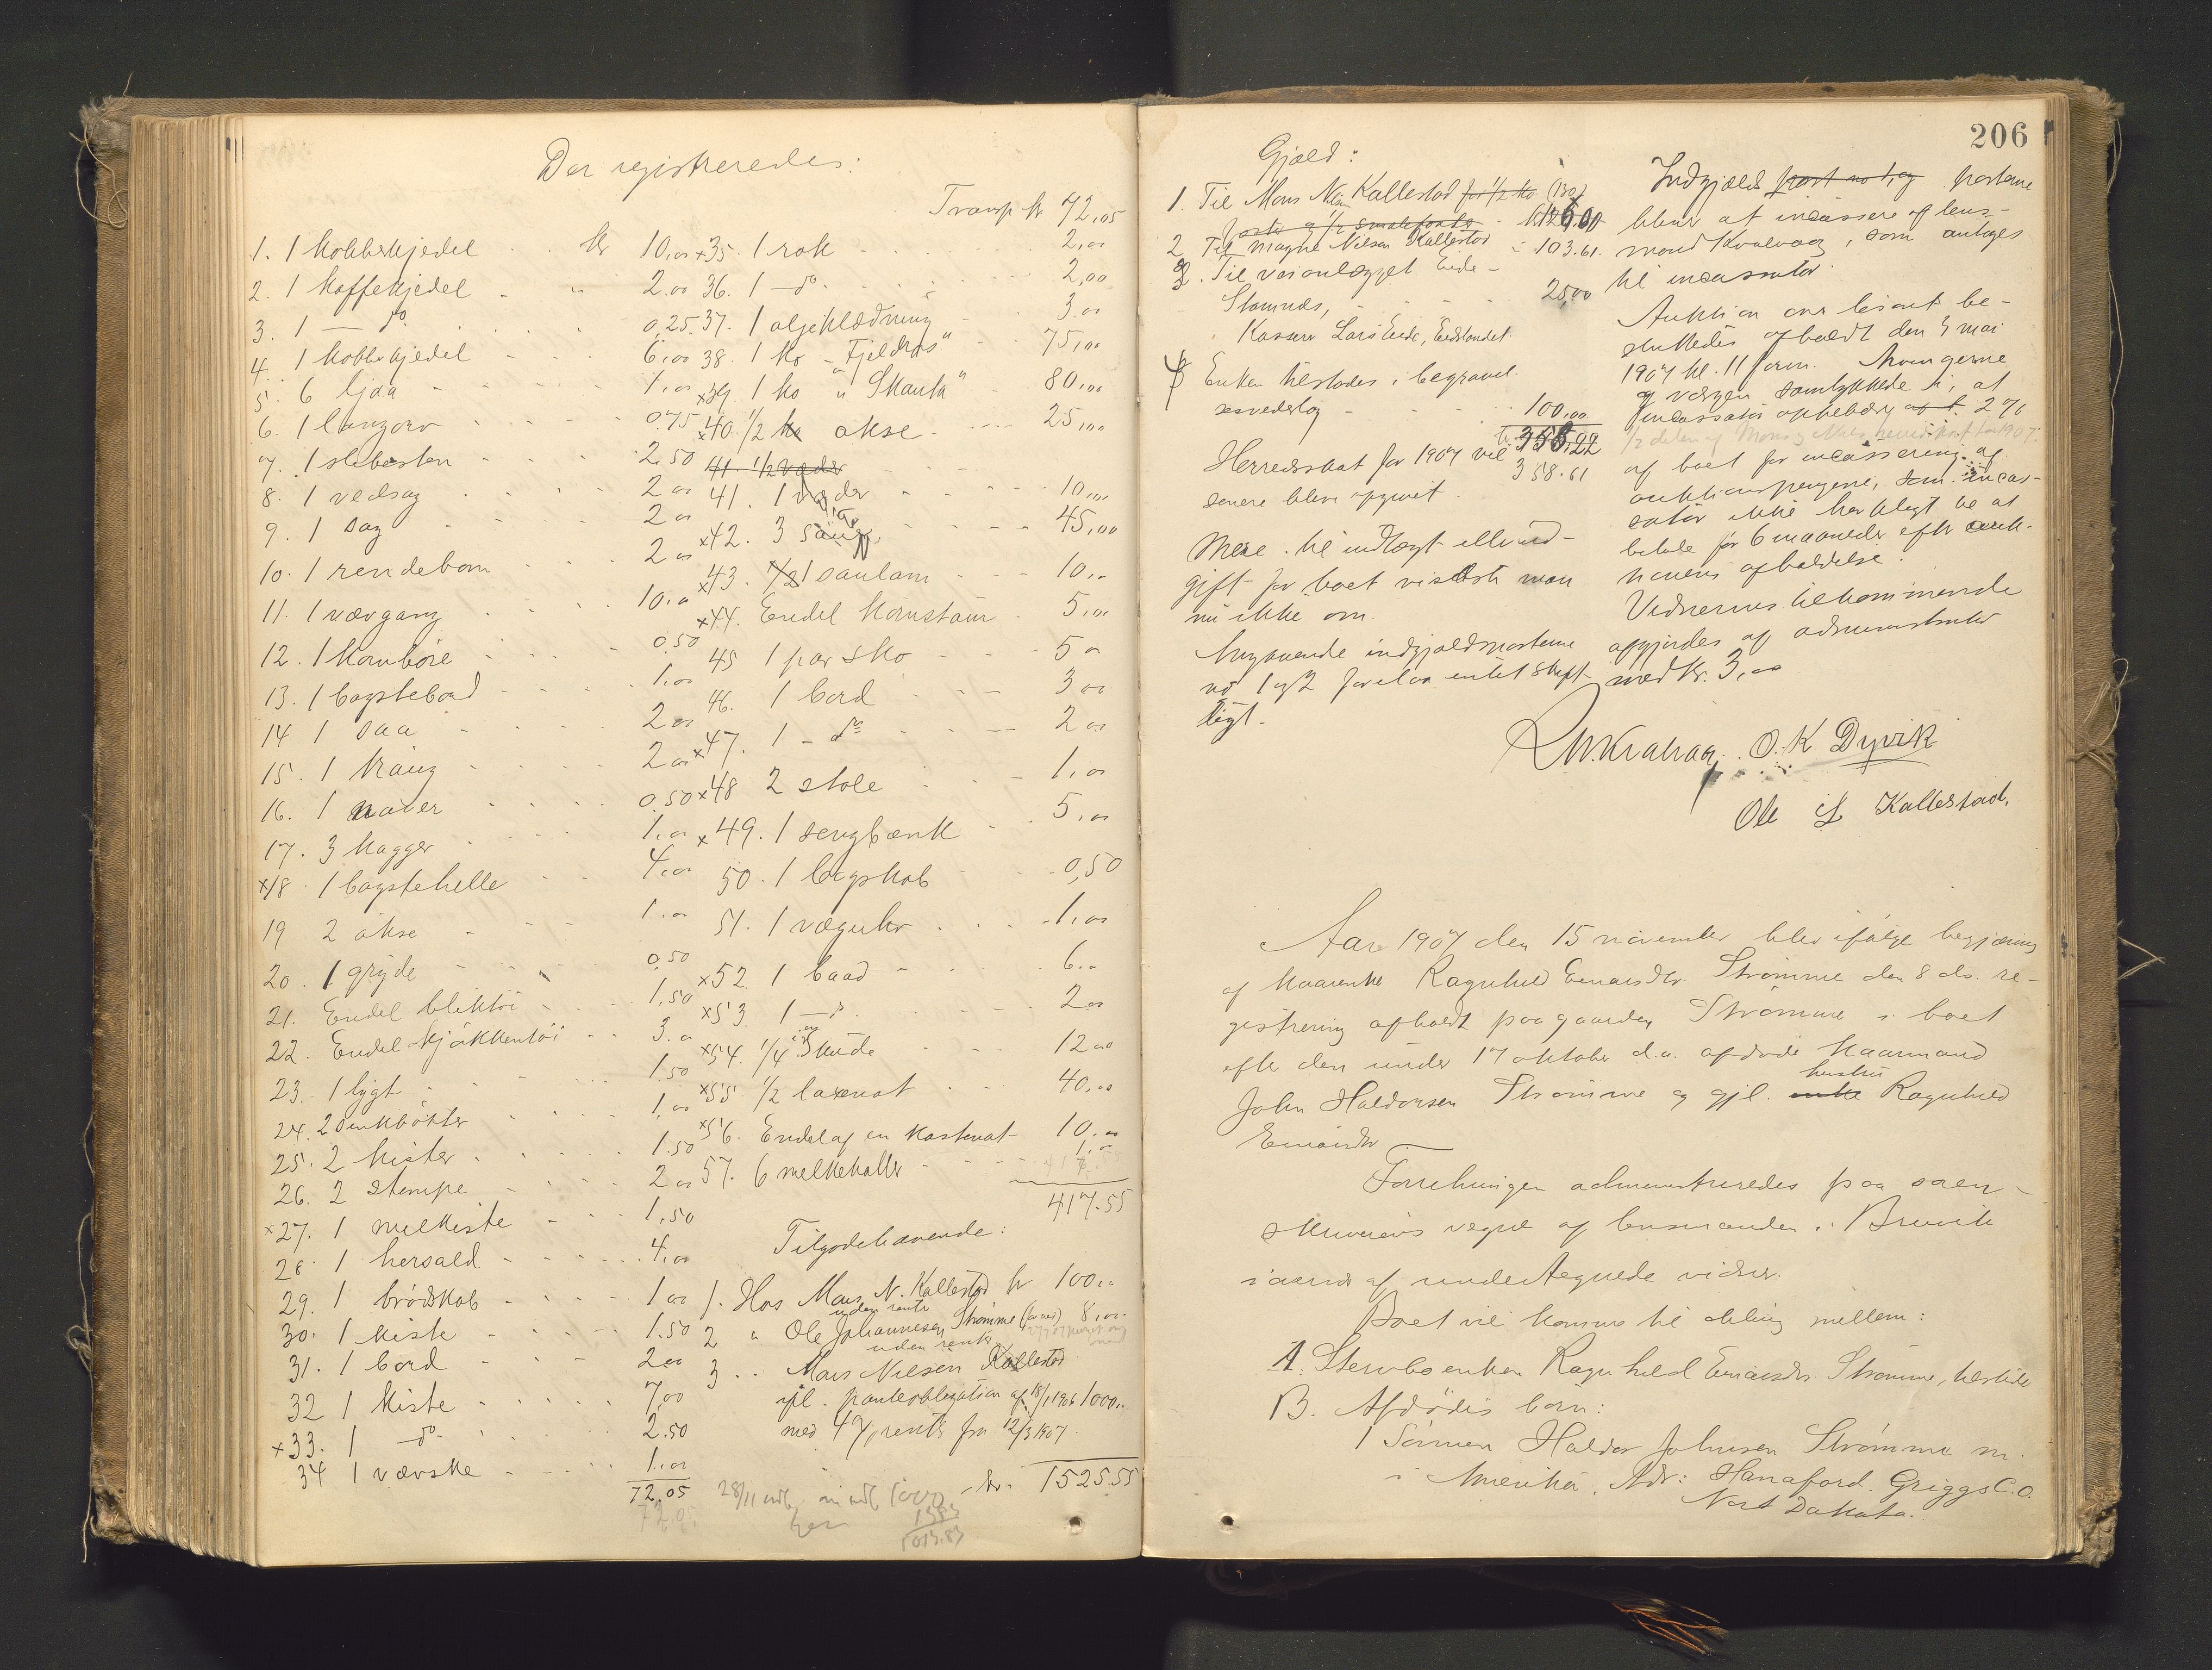 Der registreredes:
1. 1 Kobberkjedel kr 10,00
2. 1 Kaffekjedel " 2.00
3. 1 — do 0,25
4. 1 Kobberkjedel 6,00
5. 6 ljaa 1,00
6. 1 langorv 0.75
7. 1 slibesten 2,50
8. 1 vedsag 2 00
9. 1 sag 2 00
10. 1 rendebom 2 00
11. 1 vævgang 10,00
12. 1 Kornbøre 0.50
13. 1 bagstebord 1,00
14 1 saa 2 00
15. 1 Krang 2 00
16. 1 naver 0.50
17. 3 Kagger 1,00
x18 1 bagstehelle 4,00
19 2 økse 1.00
20. 1 gryde 0.50
21. Endel bliktøi 1,50
22. Endel kjøkkentøi 3.00
23. 1 lygt 1.50
24. 2 senkbøtter 1,00
25. 2 kister 1.50
26. 2 stempe 2 00
x27. 1 melkiste 1,50
28. 1 hersald 4,00
29. 1 brødskab 1 00
30. 1 kiste 1.50
31. 1 bord 2 00
32 1 kiste 7,00
x33. 1 do 2.50
34 1 værske 1.00
72,05
72,05
Transp kr 72,05
x35. 1 rok 2,00
36. 1 — do 2,00
37. 1 oljeklædning 3,00
38. 1 ko "Fjeldros" 75,00
x39. 1 ko " Skaut" 80,00
x40. 1/2 ko okse 25,00
41. 1/2 væder
41. 1 væder 10,00
x42. 3 sauer 45,00
x43. 1/2 1 saulam 10,00
x44. Endel Kornstaur 5,00
45 1 par sko 5 00
46. 1 bord 3 00
x47. 1 — do 2 00
x48 2 stole 1,00
x49. 1 sengbænk 5,00
50. 1 bogskab 0,50
51. 1 væguhr 1,00
x52. 1 baad 6,00
x53. 1 — do 2,00
x54. 1/4 i en Skude 12 00
x55 1/2 laxenot 40,00
x56. Endel af en kastenot 10,00
57. 6 melkekoller 1,00
417.55
Tilgodehavende:
1. Hos Mons N. Kallestad kr 100,00
uden rente
2 " Ole Johannesen Strømme 8,00
uden rente
3 " Mons Nilsen Kallestad
ifl. panteobligation af 18/1 1906 1000,00
med 4% rente fra 12/3 1907.
kr. 1525.55
28/11
1013.83
206
Gjæld:
1. Til Mons Nilsen Kallestad for 1/2 ko
foster og 1/2 smalefoster
2 Til Magne Nilsen Kallestad " 103.61.
3. Til veianlægget Eide –
Stamnes, 25,00
Kasserer Lars Eide, Eidslandet.
4 Enken tilstodes i begravel-
sesvederlag 100,00
358.22
Herredsskat for 1907 vil 358.61
senere blive opgivet.
Mere til indtægt eller ud-
gift for boet vidste man
nu ikke om.
Angaaende indgjældsposterne
no 1 og 2 forelaa intet skrift-
ligt.
Indgjælds post no 1, og posterne
bliver at incassere af lens-
mand Kvalvaag, som antoges
til incassator.
Auktion over løsøret be-
sluttedes afholdt den 4 mai
1907 kl. 11 form. Arvingerne
og værgen samtykkede i, at
incassator oppebærer af b. 2%
af boet for incassering af
auktionspengene, som incas-
sator ikke har pligt til at
betale før 6 maaneder efter auk-
tionens afholdelse.
Vidnernes tilkommende
opgjordes af administrator
med Kr. 3,00
O. K. Dyvik
Ole L Kallestad.
Aar 1907 den 15 november blev ifølge begjæring
af kaarenke Ragnhild Einarsdtr. Strømme den 8 ds. re-
gistrering afholdt paa gaarden Strømme i boet
efter den under 17 oktober d.a. afdøde kaarmand
John Haldorsen Strømme og gjl. enke hustru Ragnhild
Einarsdtr
Forretningen administreredes paa soren-
skriverens vegne af lensmanden i Bruvik
i nærvær af undertegnede vidner.
Boet vil komme til deling mellem:
A. Stervboenken Ragnhild Einarsdtr. Strømme, tilstede
B. Afdødes børn:
1 Sønnen Haldor Johnsen Strømme m.
i Amerika, Adr: Hanaford. Griggs C.O.
Nort Dakota.